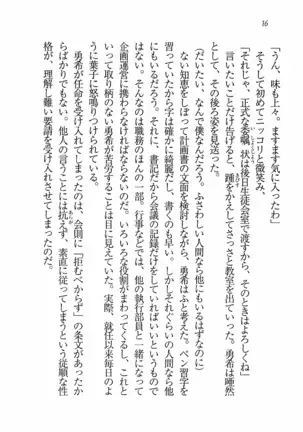 16
「うん、味も上々。ますます気に入ったわ」
そうして初めてニッコリと微笑み、
「それじゃ、正式な委嘱状は後日生徒会室で渡すから、そのときはよろしくね」
言いたいことだけ告げると、踵をかえしてさっさと教室を出ていった。勇希は唖然
として、その後ろ姿を見送った。
（だいたい、なんで僕なんだろう。ふさわしい人間なら他にもいるはずなのに）
ない知恵をしぼって計画書の文面を検討しながら、勇希はふと考えた。ペン習字を
習っていたから字は確かに綺麗だし、書くのも早い。しかしそれぐらいの人間なら他
にもいるだろう。それに、書記だから会議の記録だけをしていればいいというもので
はない。そんなのは職務のほんの一部。行事などでは、他の執行部員と一緒になって
企画運営に携わらなければならない。いろいろな役割がまわってくるし、これと
いって取り柄のない勇希が苦労することは目に見えていた。実際、就任以来毎日のよ
うに葉子に怒鳴りつけられている。
勇希がこの要請を受け入れてしまったのは、会則に「拒むべからず」の条文があったか
らばかりでもない。他人の言うことには抗えず、素直に従ってしまうという従順な性
格が、理解し難い要請を受け入れさせてしまったのだ。